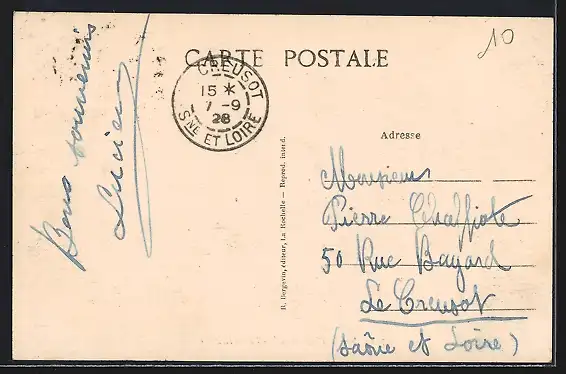 10
CARTE POSTALE
CREUSOT
15 *
7 -9
28
SNE ET LOIRE
Bons souvenirs
Lucien
Adresse
Monsieur
Pierre
50 Rue Bayard
Le Creusot
(Saône et Loire)
R. Bergevin, éditeur, La Rochelle — Reprod. interd.